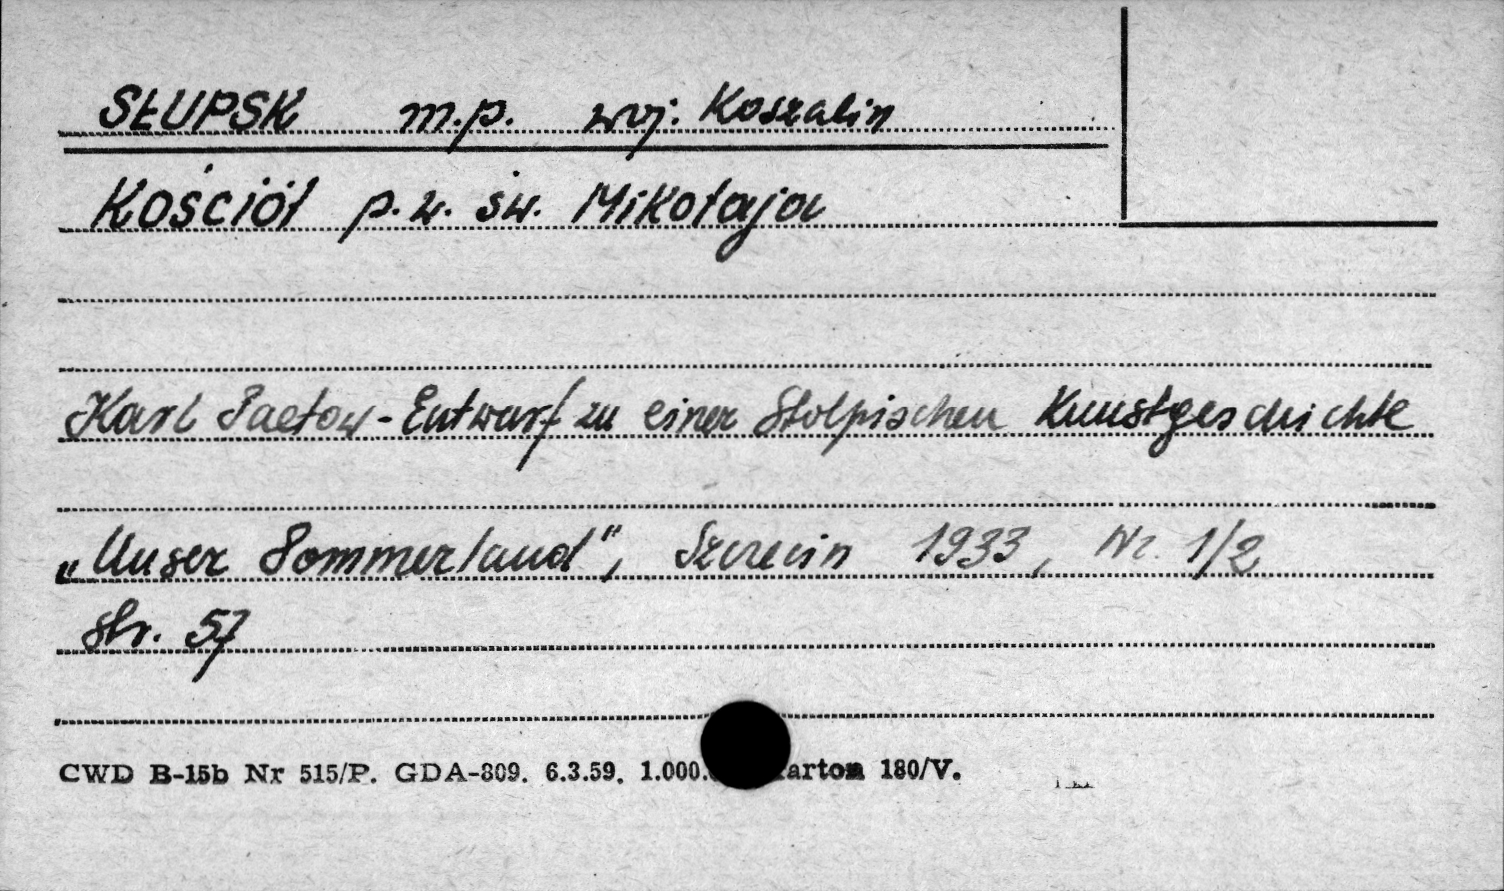 SŁUPSK m.p. woj. Koszalin
Kościół p.w. św. Mikołaja
Karl Paetow - Entwurf zu einer Stolpischen Kunstgeschichte
„Unser Pommerland", Szczecin 1933, Nr. 1/2
str. 57
CWD B-15b Nr 515/P. GDA-809. 6.3.59. 1.000. karton 180/V.